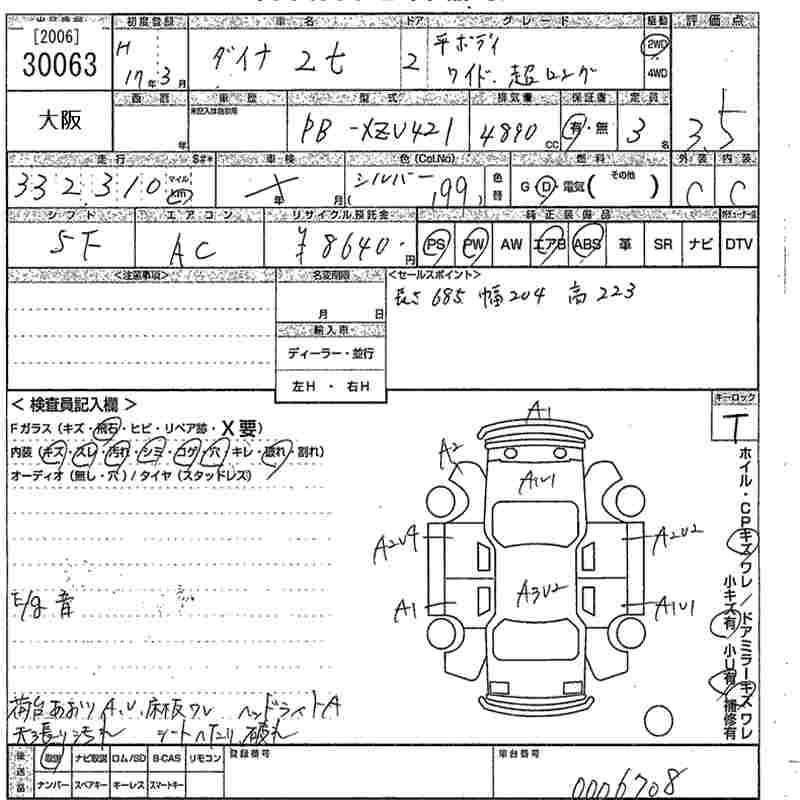 [2006]
30063
大阪
初度登録 車名 ドア グレード 駆動 評価点
H 17年3月 ダイナ 2t 2 平ボディ
ワイド 超ロング
2WD
4WD
車歴 型式 排気量 保証書 定員
年 PB-XZU421 4890cc 有・無 3名 3.5
走行 車検 色(Col.No) 燃料 外装 内装
332,310 マイル km
年 月 シルバー (199) 色替 G・D・電気( その他 ) C C
シフト エアコン リサイクル預託金 純正装備品
5F AC ¥8640-円 PS PW AW エアB ABS 革 SR ナビ DTV
<注意事項> 名変期限 <セールスポイント>
月 日
長さ685 幅204 高223
輸入車
ディーラー・並行
左H・右H
<検査員記入欄>
Fガラス(キズ・飛石・ヒビ・リペア跡・X要)
内装(キズ・スレ・汚れ・シミ・コゲ・穴・キレ・破れ・割れ)
オーディオ(無し・穴)/タイヤ(スタッドレス)
キーロック
T
A1
A2
A1U1
A2U4
A2U2
A3U2
A1
A1U1
ホイル・CPキズワレ/ドアミラーキズワレ
小キズ有 小U有 補修有
E/g音
荷台あおりA、U、床板ワレ ヘッドライトA
天張り汚れ シートヘタリ、破れ
後送品 取説 ナビ取説 ロム/SD B-CAS リモコン 登録番号 車台番号
ナンバー スペアキー キーレス スマートキー
0006708